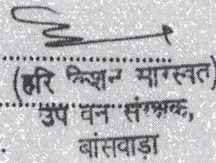 (हरि किशन सारस्वत)
उप वन संरक्षक,
बांसवाड़ा